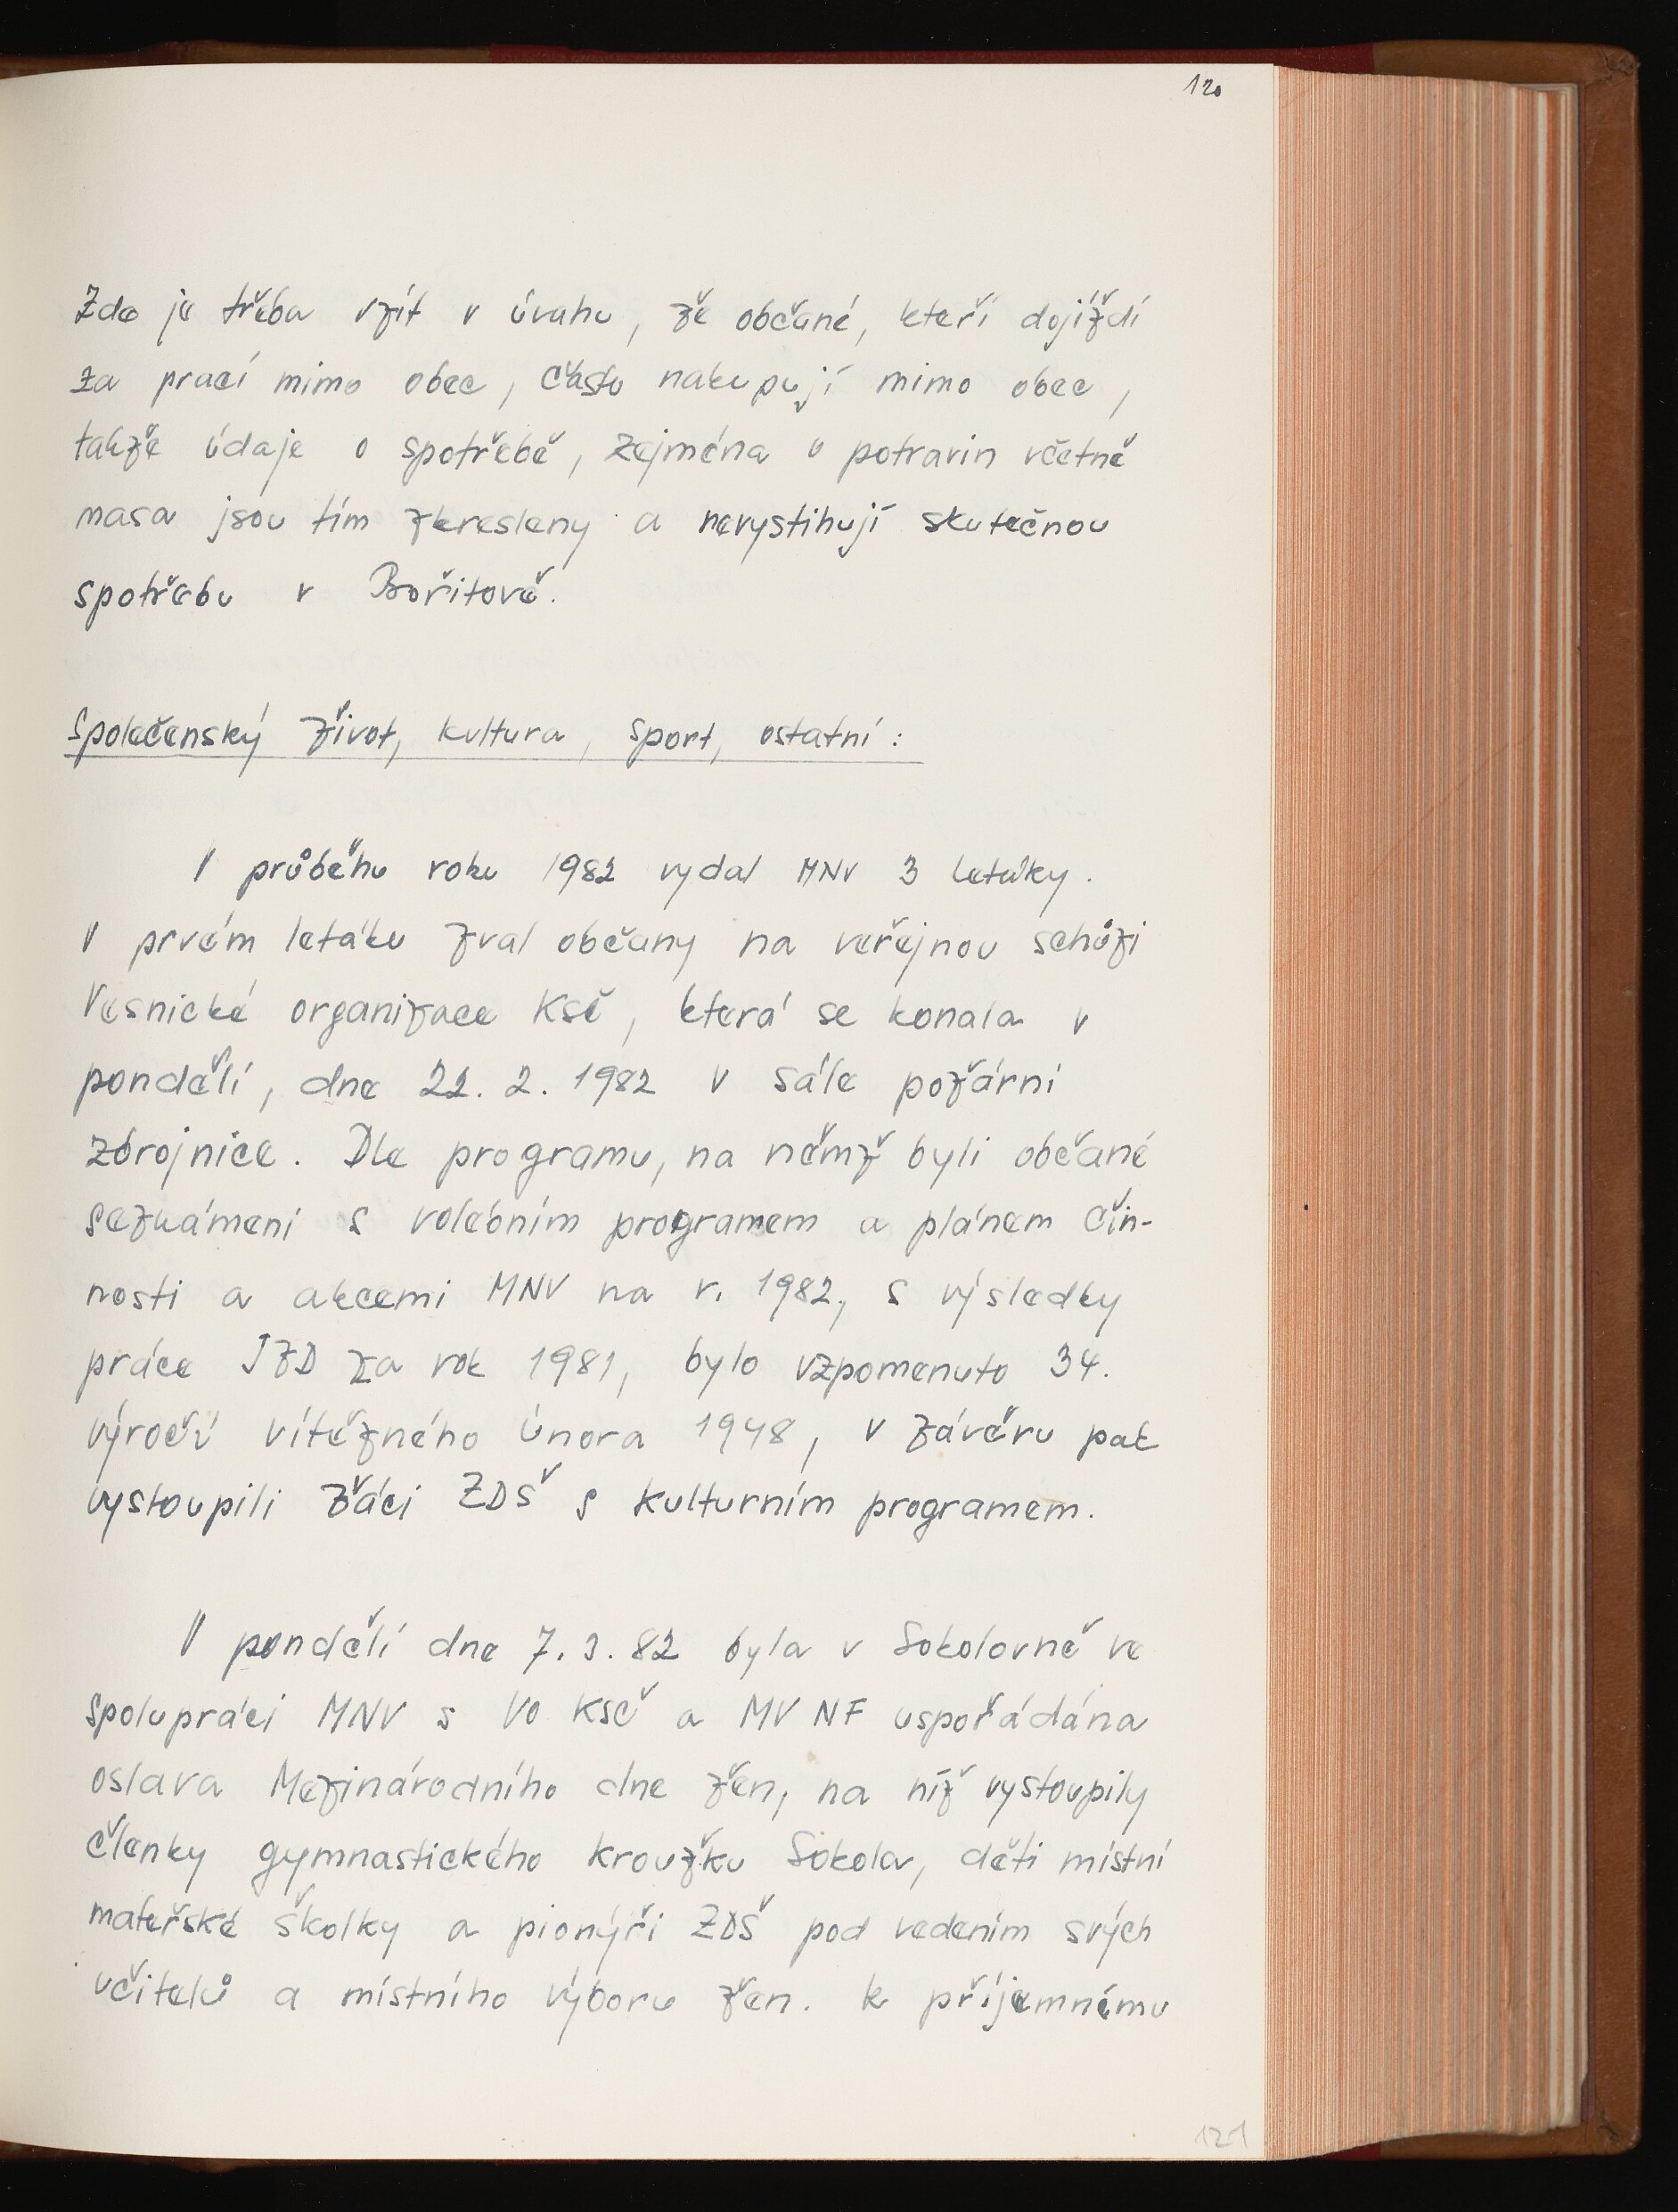 120
Zde je třeba vzít v úvahu, že občané, kteří dojíždí
za prací mimo obec, často nakupují mimo obec,
takže údaje o spotřebě, zejména u potravin včetně
masa jsou tím zkresleny a nevystihují skutečnou
spotřebu v Bořitově.
Společenský život, kultura, sport, ostatní:
V průběhu roku 1982 vydal MNV 3 letáky.
V prvém letáku zval občany na veřejnou schůzi
Vesnické organizace KSČ, která se konala v
pondělí, dne 22. 2. 1982 v sále požární
zbrojnice. Dle programu, na němž byli občané
seznámeni s volebním programem a plánem čin-
nosti a akcemi MNV na r. 1982, s výsledky
práce JZD za rok 1981, bylo vzpomenuto 34.
výročí vítězného února 1948, v závěru pak
vystoupili žáci ZDŠ s kulturním programem.
V pondělí dne 7. 3. 82 byla v Sokolovně ve
spolupráci MNV s VO KSČ a MV NF uspořádána
oslava Mezinárodního dne žen, na níž vystoupily
členky gymnastického kroužku Sokola, děti místní
mateřské školky a pionýři ZDŠ pod vedením svých
učitelů a místního výboru žen. K příjemnému
121